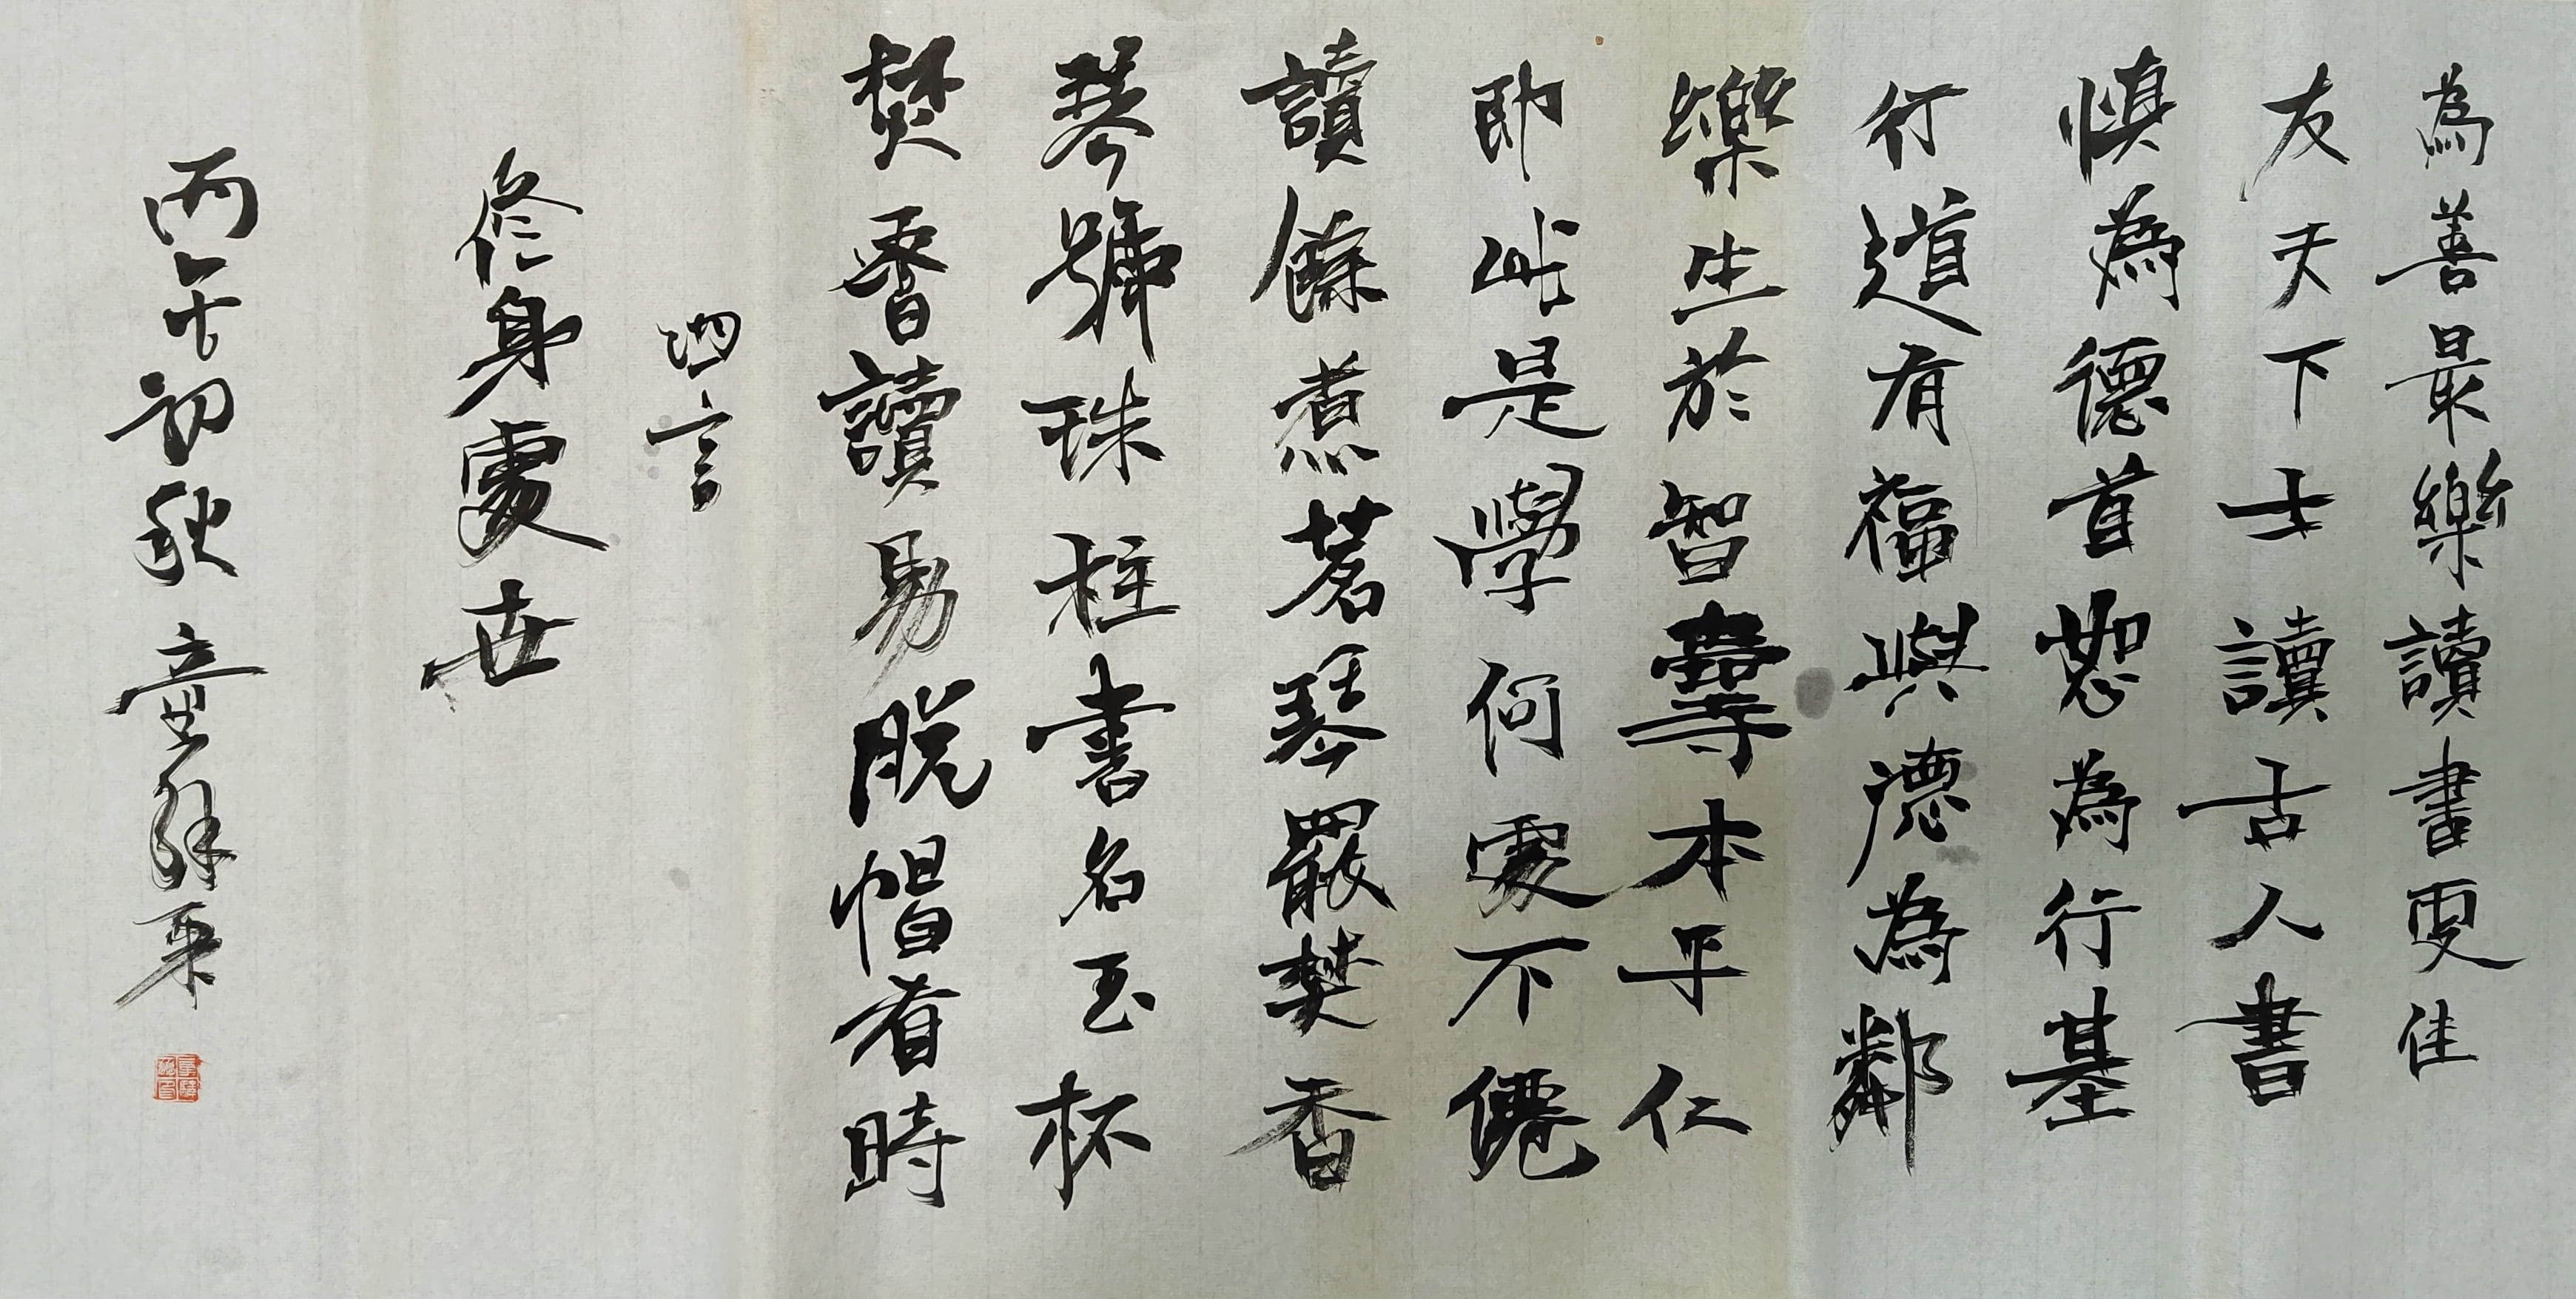 為善最樂讀書更佳
友天下士讀古人書
慎為德首恕為行基
行道有福與德為鄰
樂生於智壽本乎仁
即此是學何處不僊
讀餘煮茗琴罷焚香
琴號珠柱書名玉杯
焚香讀易脫帽看時
四言
修身處世
丙午初秋